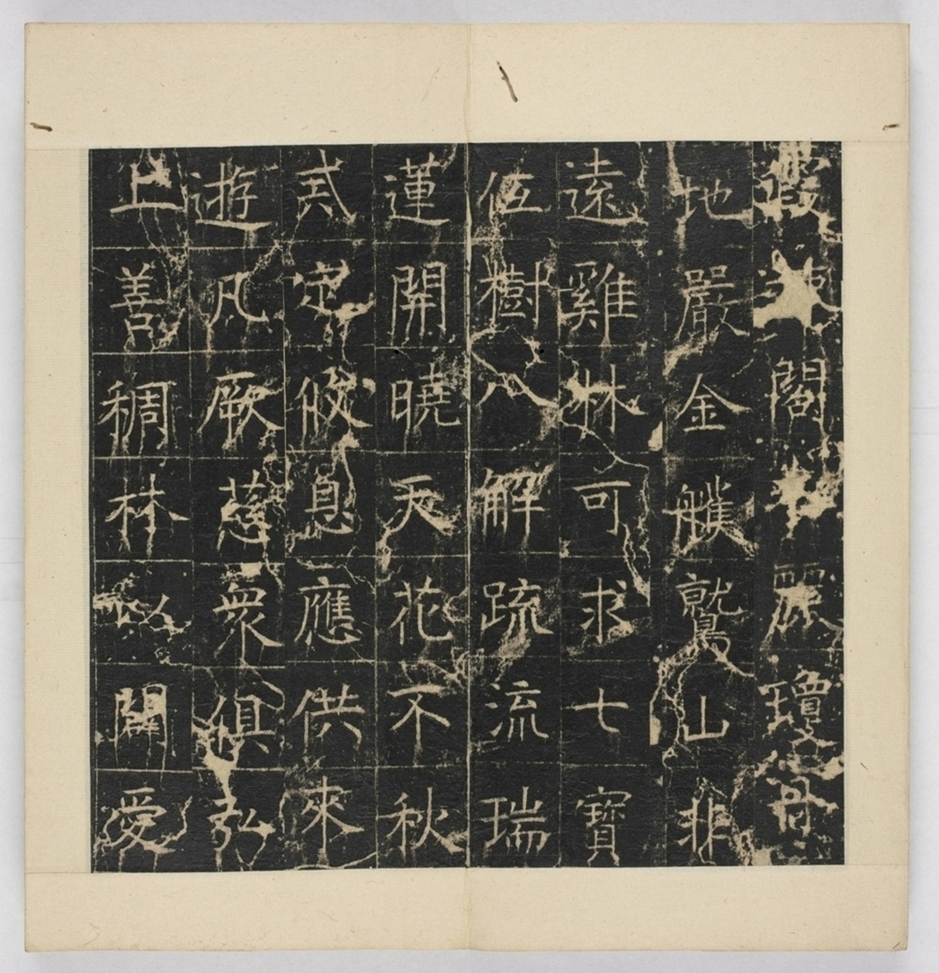 霞閣麗瓊丹
地嚴金雘鷲山非
遠雞林可求七寶
伍樹八解疏流瑞
蓮開曉天花不秋
貳定攸息應供來
遊凡厥慈衆俱弘
上善稠林以闢愛